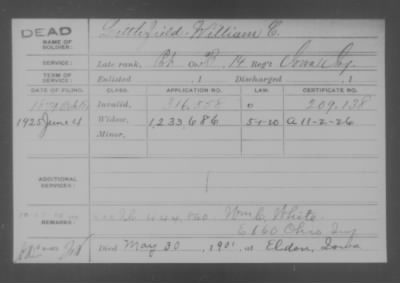 DEAD
NAME OF SOLDIER: Littlefield, William C.
SERVICE: Late rank, Co. 14 Reg't
TERM OF SERVICE: Enlisted , 1 Discharged , 1
DATE OF FILING. CLASS. APPLICATION NO. LAW. CERTIFICATE NO.
Invalid, 316,558 209,138
1925 June 4 Widow, 1,233,686 5-1-20 A 11-2-26
Minor,
ADDITIONAL SERVICES:
REMARKS: Wm C. White
6 & 60 Ohio Inf
Died May 30, 1901, at Eldon, Iowa